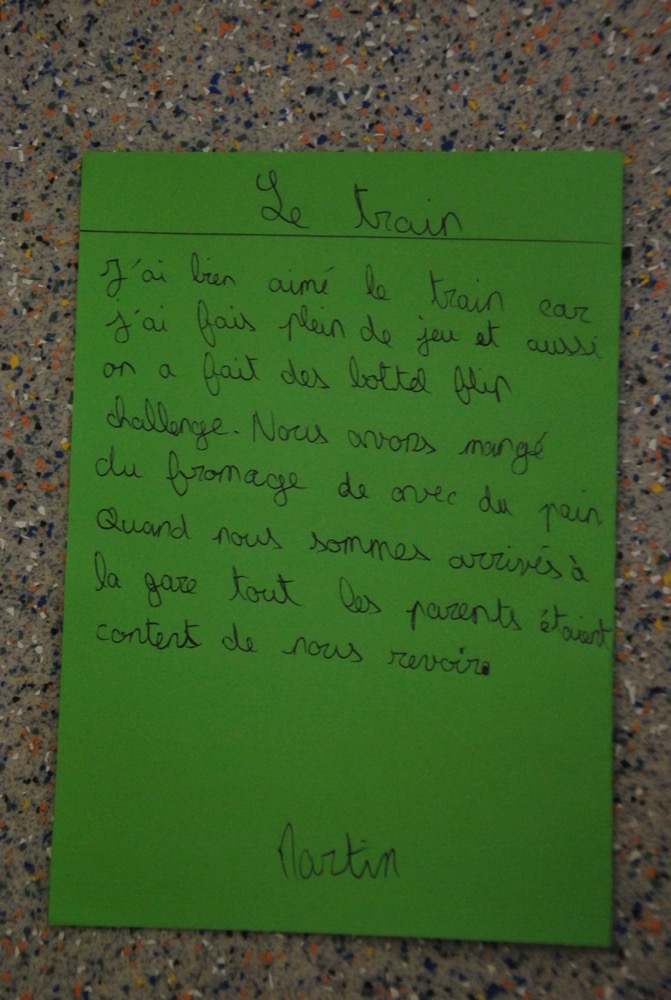 Le train
J'ai bien aimé le train car
j'ai fais plein de jeu et aussi
on a fait des bottel flip
challenge. Nous avons mangé
du fromage de avec du pain
Quand nous sommes arrivés à
la gare tout les parents étaient
contents de nous revoir.
Martin